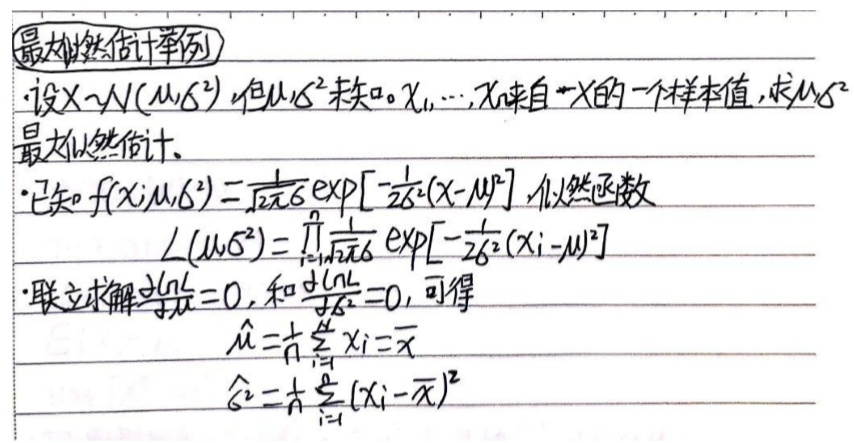 最大似然估计举例
·设X~N(μ,σ²),但μ,σ²未知。x₁,…,xₙ来自X的一个样本值,求μ,σ²
最大似然估计、
·已知f(x;μ,σ²)=1/(√(2π)σ) exp[-1/(2σ²)(x-μ)²],似然函数
L(μ,σ²)=∏ⁿᵢ₌₁ 1/(√(2π)σ) exp[-1/(2σ²)(xi-μ)²]
·联立求解∂lnL/∂μ=0,和∂lnL/∂σ²=0,可得
μ̂=1/n ∑ⁿᵢ₌₁ xi=x̄
σ̂²=1/n ∑ⁿᵢ₌₁ (xi-x̄)²